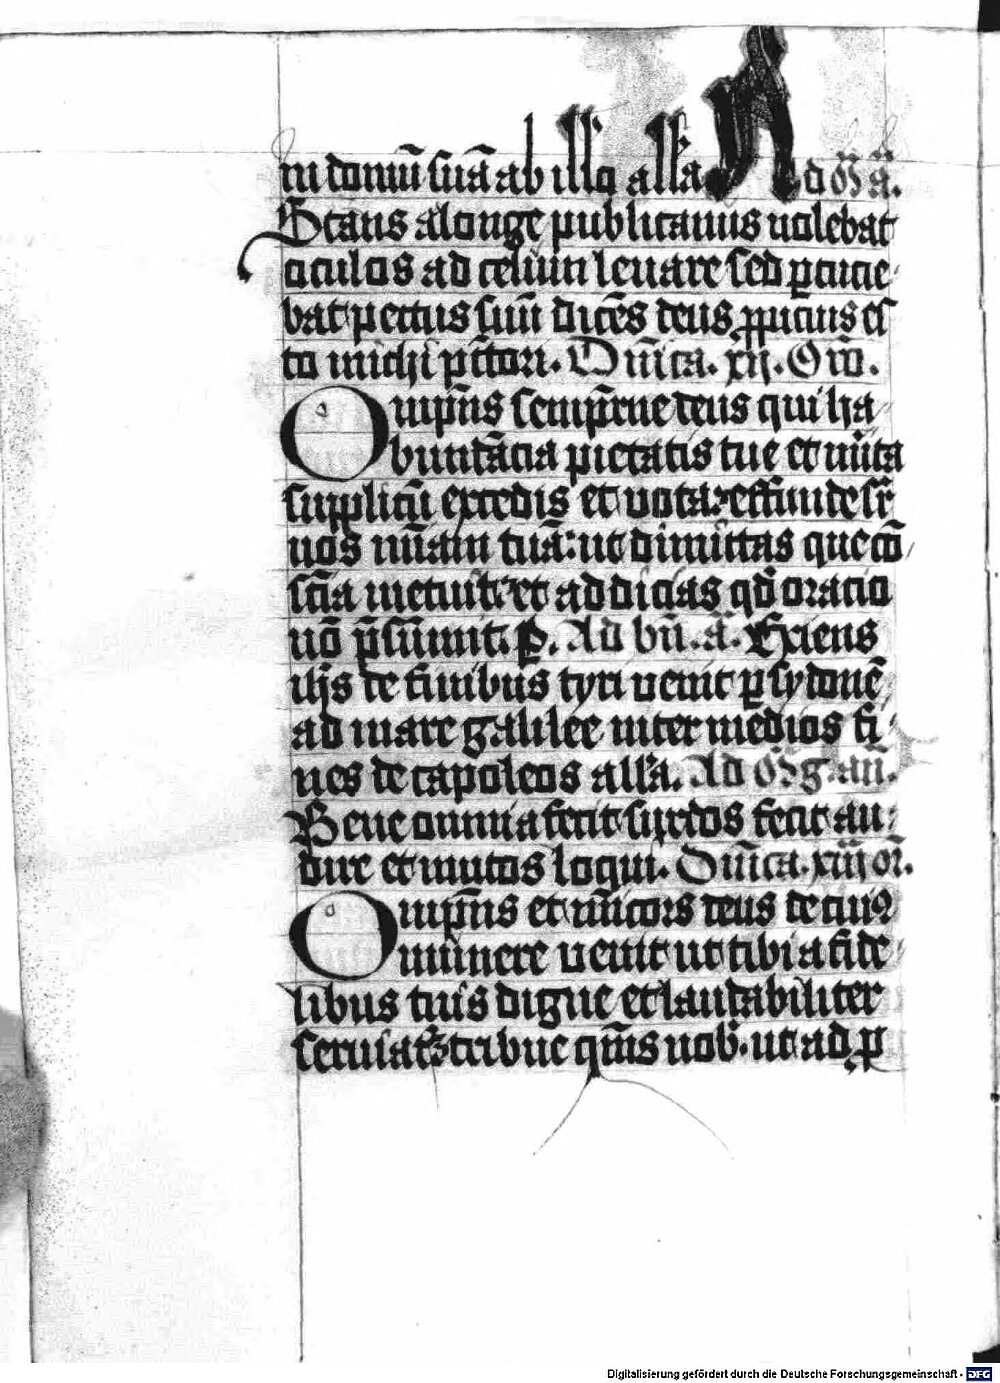 in domū suā ab illo alla Ad m̄ a.
Stans a longe publicanus nolebat
oculos ad celum leuare sed ꝑcucie
bat pectus suū dicēs deus ꝓpicius es
to michi pctori. Dn̄ica. xij. Oro.
Omīpn̄s sempit̄ne deus qui ha
bundācia pietatis tue et mīta
supplicū excedis et uota: effunde sr̄
nos mīam tuā: ut dimittas que cō
sciā metuit: et addicias qd̄ oracio
nō p̄sumit. P. Ad bn̄. a. Exiens
ihs de finibus tyri uenit ꝑ sydonē
ad mare galilee inter medios fi
nes decapoleos alla. Ad mg. an.
Bene omnia fecit surdos fecit au
dire et mutos loqui. Dn̄ica. xiij or.
Omīpn̄s et mīcors deus de cuiꝯ
munere uenit ut tibi a fide
libus tuis digne et laudabiliter
seruiatꝛ tribue qm̄s nob. ut ad ꝓ
Digitalisierung gefördert durch die Deutsche Forschungsgemeinschaft - DFG